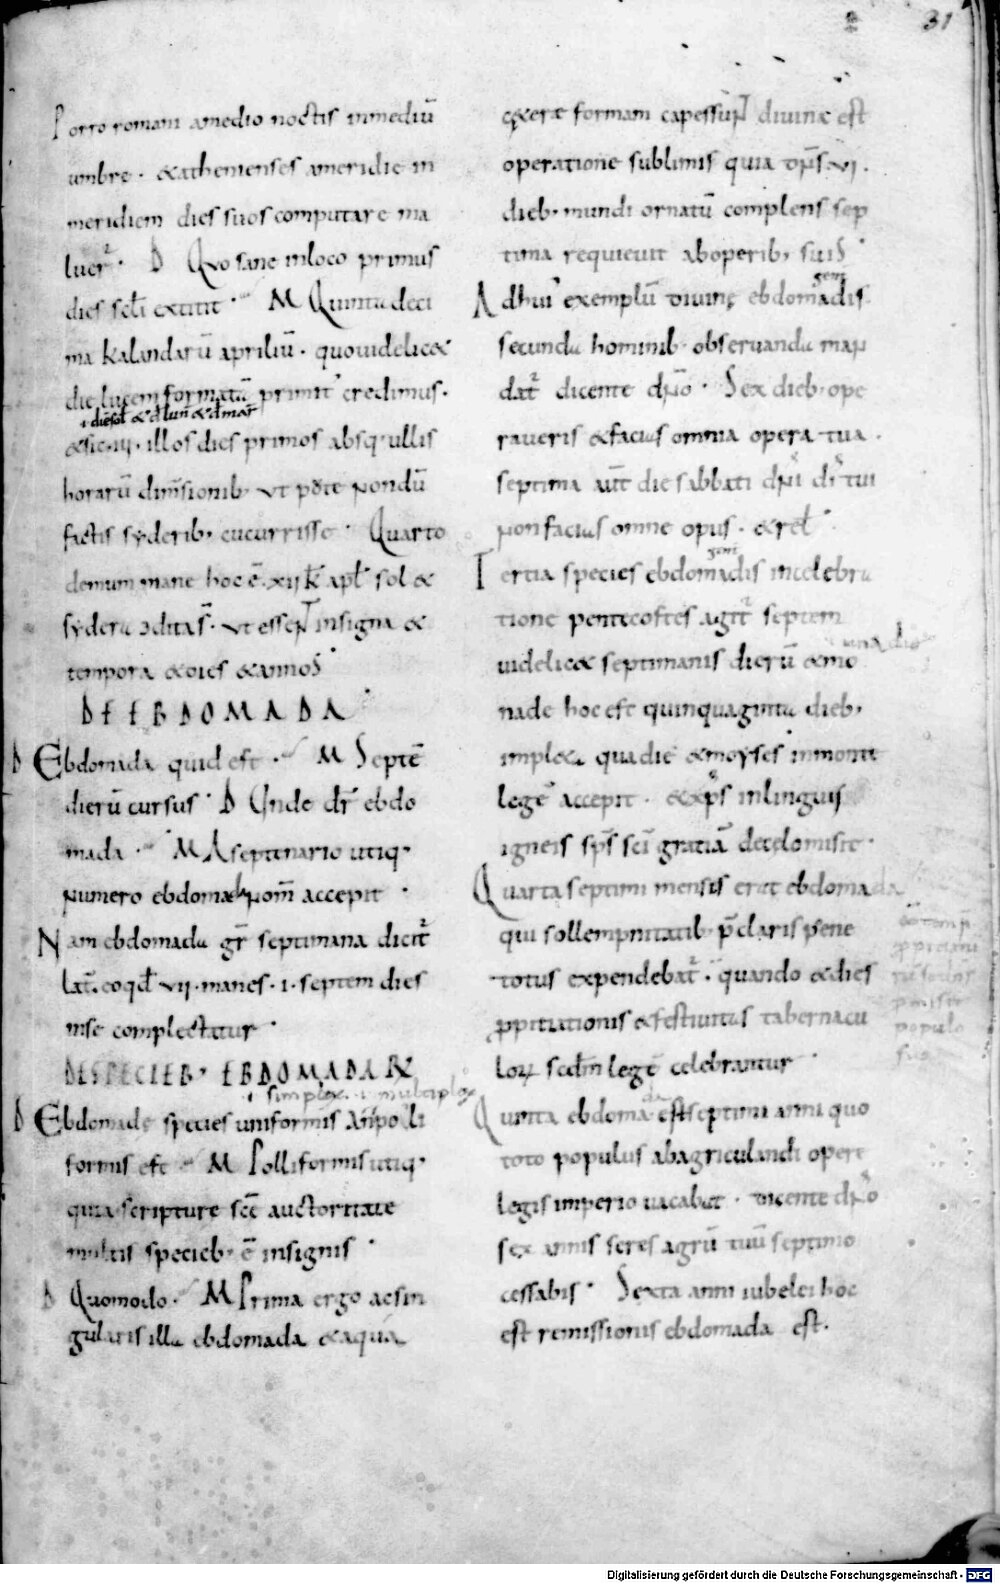 31
Porro romani amedio noctis inmediū
umbre · &athenienses ameridie in
meridiem dies suos computare ma
luer̄ · D Quo sane inloco primus
dies scl̄i extitit · M Quinta deci
ma kalandarū apriliū · quouidelic&
die lucem formatā primit' credimus ·
·i· diē sol̄ & d̄ lun̄ & d̄ mar̄
&sic · iii · illos dies primos absq· ullis
horarū dim̄sionib; ut p̄ote nondū
factis sẏderib; cucurrisse · Quarto
demum mane hoc ē · xii k̄ apl̄ sol &
sẏdera ɔditas̄ · ut essen̄t insigna &
tempora &dies &annos ·
DE EBDOMADA
D Ebdomada quid est · M Septē
dierū cursus · D Unde dr̄ ebdo
mada · M A septenario utiq·
numero ebdomada nom̄ accepit ·
Nam ebdomada gr̄ septimana dicit̄
lat̄ · eoqd̄ vii · manes · i · septem dies
inse complectatur ·
DE SPECIEB; EBDOMADAꝜ
·i· simplex · ·i· multiplex
D Ebdomade species uniformis An̄ poli
formis est · M Polliformis utiq·
quia scripture scē auctoritate
multis specieb; ē insignis ·
D Quomodo · M Prima ergo acsin
gularis illa ebdomada &aqua
c&eræ formam capessun̄t diuinæ est
operatione sublimis quia dn̄s vi ·
dieb; mundi ornatū complens sep
tima requieuit aboperib; suis ·
Ad hui' exemplū diuinę ebdomadis
gen̄
secunda hominib; obseruanda man
dat̄ dicente dn̄o · Sex dieb; ope
raueris &facias omnia opera tua ·
septima aūt die sabbati dn̄i dī tui
nonfacias omne opus · &rel̄ ·
Tertia species ebdomadis incelebra
gen̄
tione pentecostes agit̄ septem
uidelic& septimanis dierū &mo
una die
nade hoc est quinquaginta dieb;
impl&a quadie &moyses inmonte
legē accepit · &xp̄s inlinguis
igneis sp̄s sc̄i gratiā decelo misit ·
Quarta septimi mensis erat ebdomada
qui sollempnitatib; p̄claris pene
totus expendebat̄ · quando &dies
ꝓpitiationis &festiuitas tabernacu
loꝝ scd̄m legē celebrantur ·
populo
suo
Quinta ebdomada est septimi anni quo
toto populus abagriculandi opere
legis imperio uacabat · dicente dn̄o
sex annis seres agrū tuū septimo
cessabis · Sexta anni iubelei hoc
est remissionis ebdomada est ·
Digitalisierung gefördert durch die Deutsche Forschungsgemeinschaft - DFG